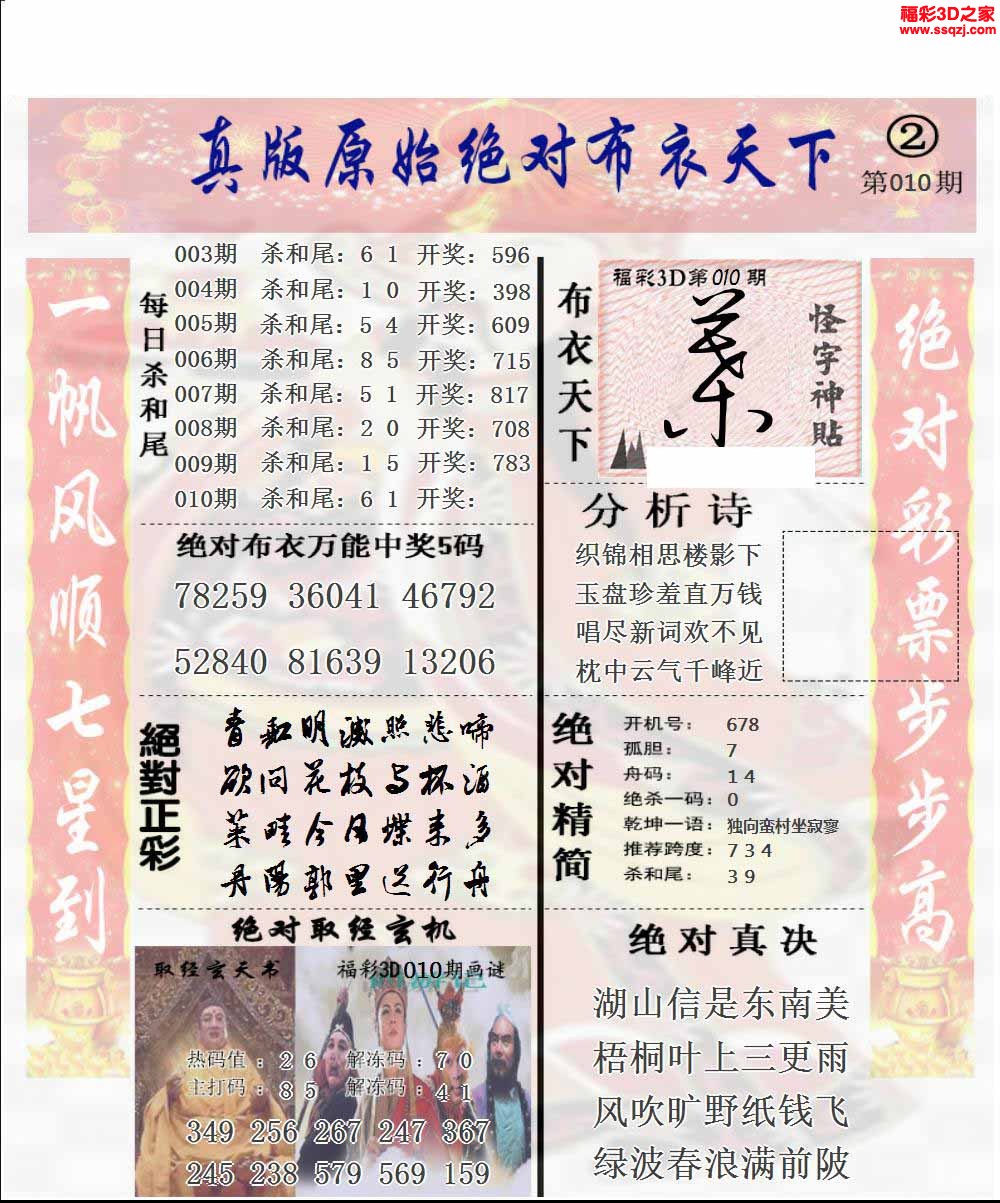 福彩3D之家
www.ssqzj.com
真版原始绝对布衣天下
②
第010期
一帆风顺七星到
每日杀和尾
003期 杀和尾：6 1 开奖：596
004期 杀和尾：1 0 开奖：398
005期 杀和尾：5 4 开奖：609
006期 杀和尾：8 5 开奖：715
007期 杀和尾：5 1 开奖：817
008期 杀和尾：2 0 开奖：708
009期 杀和尾：1 5 开奖：783
010期 杀和尾：6 1 开奖：
绝对布衣万能中奖5码
78259 36041 46792
52840 81639 13206
絕對正彩
青缸明滅照悲啼
欲问花枝与杯酒
菜畦今日蝶来多
丹陽郭里送行舟
绝对取经玄机
取经玄天书
福彩3D010期画谜
热码值：2 6 解冻码：7 0
主打码：8 5 解冻码：4 1
349 256 267 247 367
245 238 579 569 159
布衣天下
福彩3D第010期
怪字神貼
分析诗
织锦相思楼影下
玉盘珍羞直万钱
唱尽新词欢不见
枕中云气千峰近
绝对精简
开机号：678
孤胆：7
舟码：1 4
绝杀一码：0
乾坤一语：独向蛮村坐寂寥
推荐跨度：7 3 4
杀和尾：3 9
绝对真决
湖山信是东南美
梧桐叶上三更雨
风吹旷野纸钱飞
绿波春浪满前陂
绝对彩票步步高